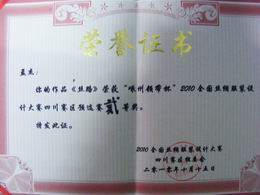 荣誉证书
孟杰：
你的作品《丝路》荣获"嵊州领带杯"2010全国丝绸服装设
计大赛四川赛区预选赛贰等奖。
特发此证。
2010全国丝绸服装设计大赛
四川赛区组委会
二零一零年十月十五日